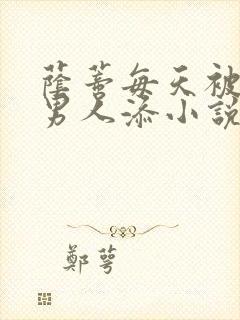 蔭蒂每天被
男人添小說
鄭萼